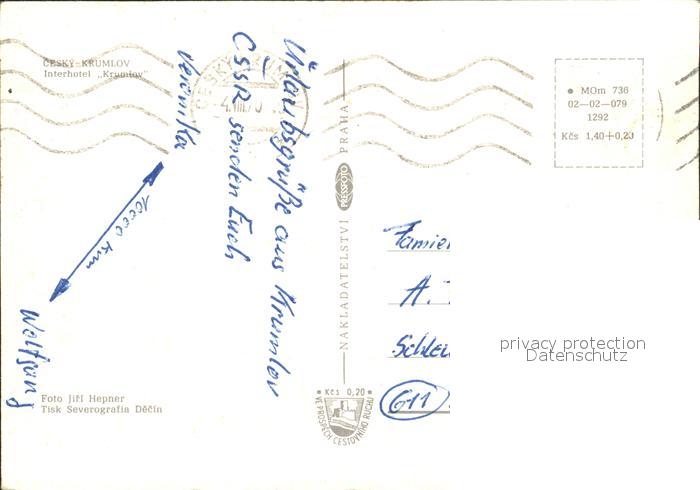 ČESKÝ-KRUMLOV
Interhotel „Krumlov"
Urlaubsgrüße aus Krumlov
ČSSR senden Euch
Veronika
10000 km
Wolfgang
Foto Jiří Hepner
Tisk Severografia Děčín
NAKLADATELSTVÍ PRESSFOTO PRAHA
* Kčs 0,20 *
VE PROSPĚCH CESTOVNÍHO RUCHU
MOm 736
02—02—079
1292
Kčs 1,40+0,20
A.
611
privacy protection
Datenschutz